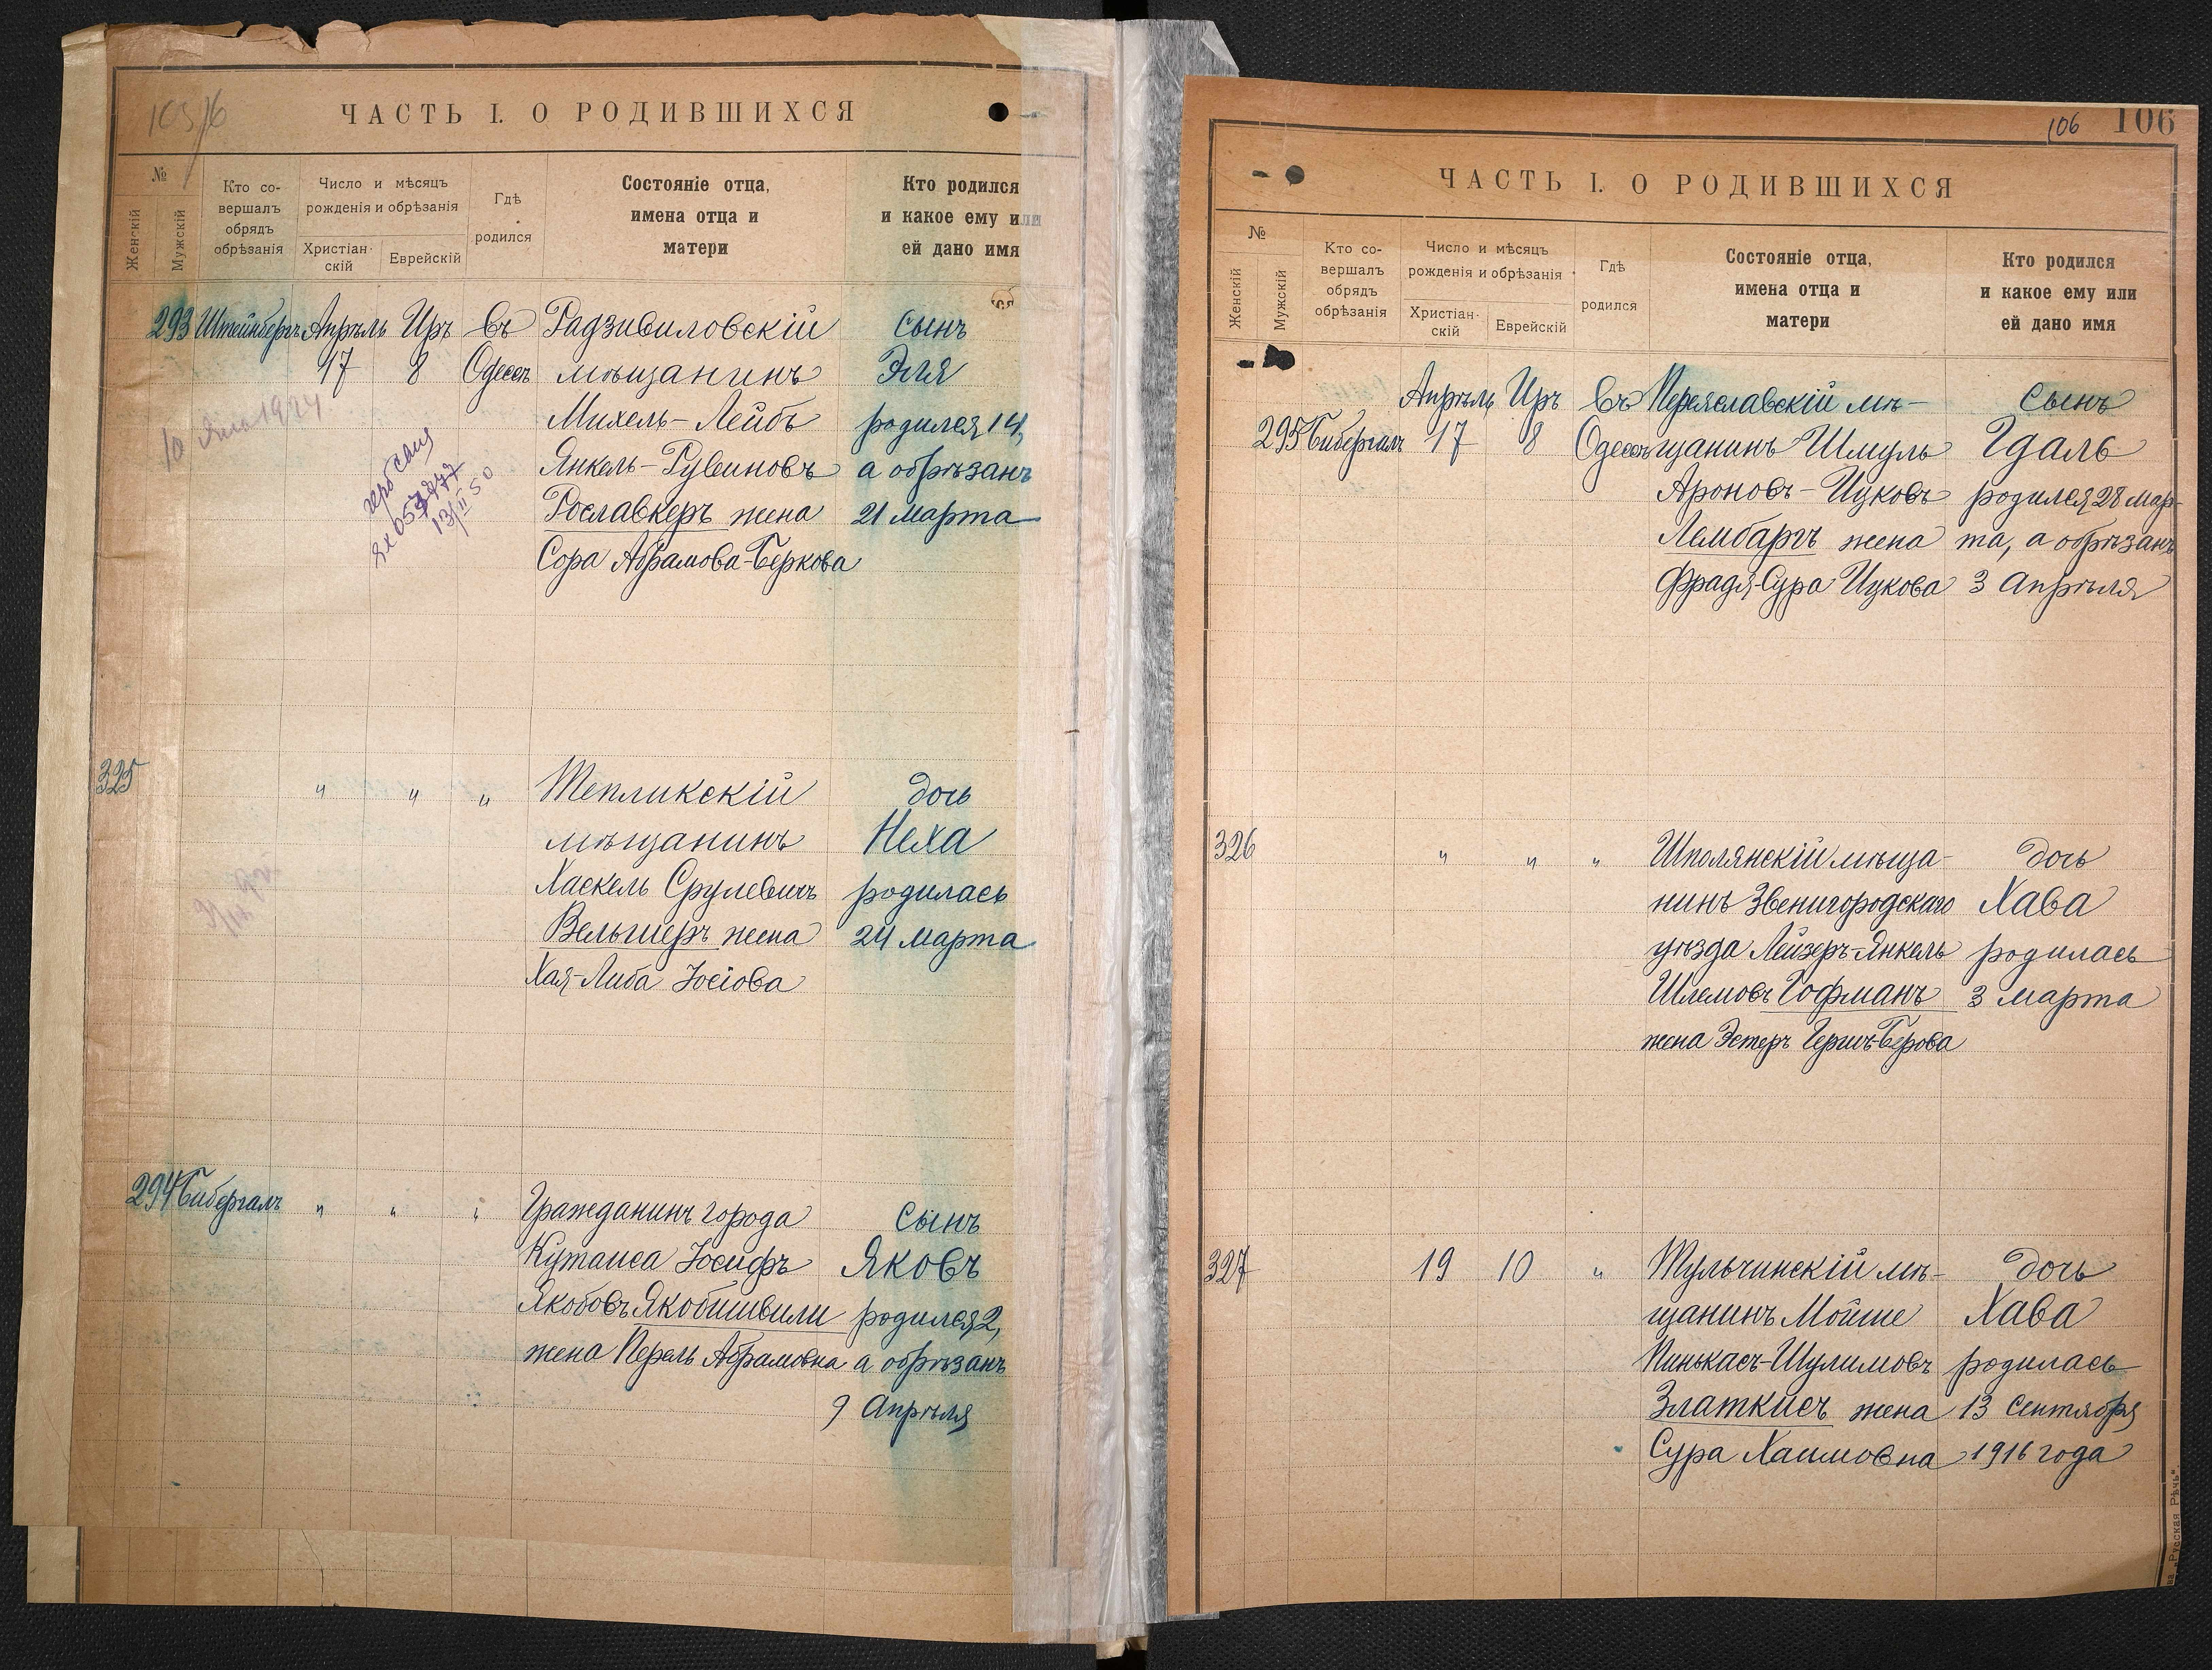 ЧАСТЬ I. О РОДИВШИХСЯ
№
Женскій
Мужскій
Кто со-
вершалъ
обрядъ
обрѣзанія
Число и мѣсяцъ
рожденія и обрѣзанія
Христіан-
скій
Еврейскій
Гдѣ
родился
Состояніе отца,
имена отца и
матери
Кто родился
и какое ему или
ей дано имя
293 Штейнбергъ Апрѣль Иръ въ Радзивиловскій сынъ
17 8 Одессѣ мѣщанинъ Эля
Михель-Лейбъ родился 14,
Янкель-Рувиновъ а обрѣзанъ
Рославкеръ жена 21 марта
Сора Абрамова-Беркова
13/II 50
325 " " " Тепликскій дочь
мѣщанинъ Неха
Хаскель Срулевичъ родилась
Вельшеръ жена 24 марта
Хая-Либа Іосіова
294 Бибергалъ " " " Гражданинъ города сынъ
Кутаиса Іосифъ Яковъ
Якобовъ Якобишвили родился 2,
жена Перель Абрамовна а обрѣзанъ
9 Апрѣля
106 106
ЧАСТЬ I. О РОДИВШИХСЯ
№
Женскій
Мужскій
Кто со-
вершалъ
обрядъ
обрѣзанія
Число и мѣсяцъ
рожденія и обрѣзанія
Христіан-
скій
Еврейскій
Гдѣ
родился
Состояніе отца,
имена отца и
матери
Кто родился
и какое ему или
ей дано имя
Апрѣль Иръ въ Переяславскій мѣ- сынъ
295 Бибергалъ 17 8 Одессѣ щанинъ Шмуль Гдаль
Ароновъ-Ицковъ родился 28 мар-
Лембаргъ жена та, а обрѣзанъ
Фрадя-Сура Ицкова 3 Апрѣля
326 " " " Шполянскій мѣща- дочь
нинъ Звенигородскаго Хава
уѣзда Лейзеръ-Янкель родилась
Шлемовъ Гофманъ 3 марта
жена Эстеръ Гершъ-Берова
327 19 10 " Тульчинскій мѣ- дочь
щанинъ Мойше Хава
Пинькасъ-Шулимовъ родилась
Златкисъ жена 13 Сентября
Сура Хаимовна 1916 года
„Русская Рѣчь".